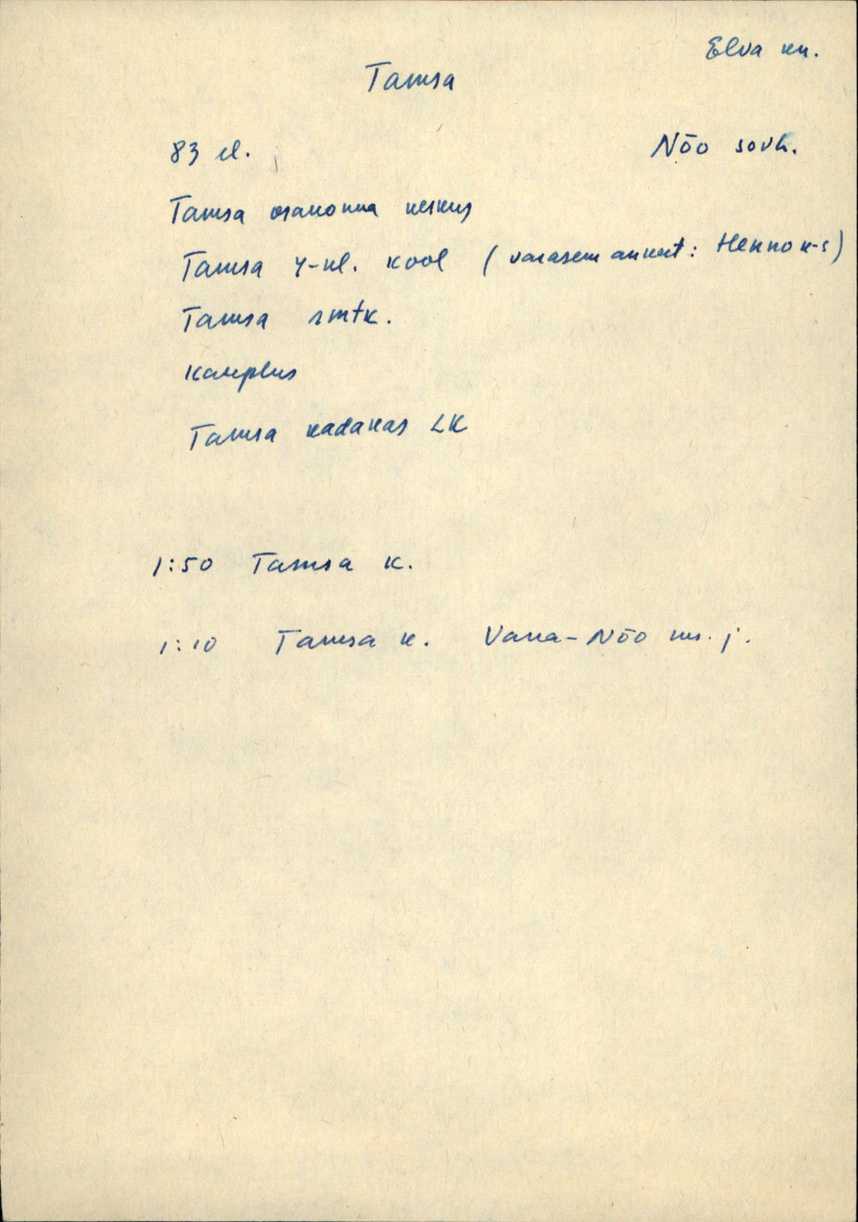 Elva kn.
Tamsa
83 el.
Nõo sovh.
Tamsa osakonna keskus
Tamsa 4-kl. kool (varasem ankeet: Henno k-s)
Tamsa rmtk.
kauplus
Tamsa kadakas LK
1:50 Tamsa k.
1:10 Tamsa k. Vana-Nõo ms. j.